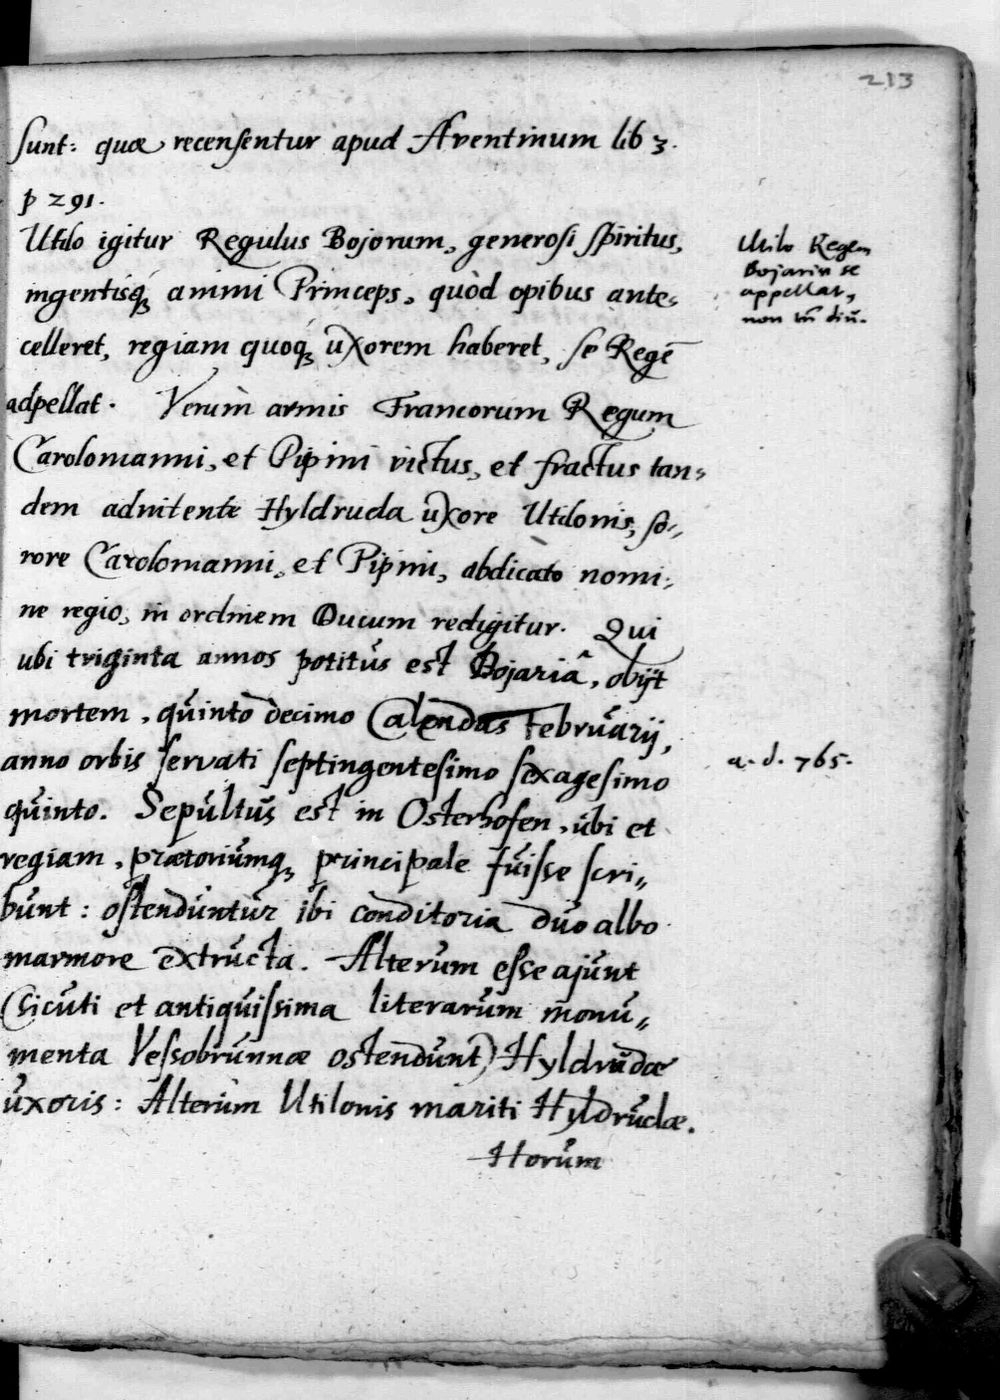 213
sunt: quæ recensentur apud Aventinum lib 3.
p 291.
Utilo igitur Regulus Bojorum, generosi spiritus,
ingentisq́; animi Princeps, quòd opibus ante-
celleret, regiam quoq́; uxorem haberet, se Regē
adpellat. Verùm armis Francorum Regum
Carolomanni, et Pipini victus, et fractus tan-
dem adnitente Hyldruda uxore Utilonis, so-
rore Carolomanni, et Pipini, abdicato nomi-
ne regio, in ordinem Ducum redigitur. Qui
ubi triginta annos potitus est Bojariâ, obijt
mortem, quinto decimo Calendas Februarij,
anno orbis servati septingentesimo sexagesimo
quinto. Sepultus est in Osterhofen, ubi et
regiam, prætoriumq; principale fuisse scri-
bunt: ostenduntur ibi conditoria duo albo
marmore extructa. Alterum esse ajunt
(sicuti et antiquissima literarum monu-
menta Vessobrunnæ ostendunt) Hyldrudæ
uxoris: Alterum Utilonis mariti Hyldrudæ.
Horum
Utilo Regem
Bojariæ se
appellat,
non tn̄ diu.
a. d. 765.